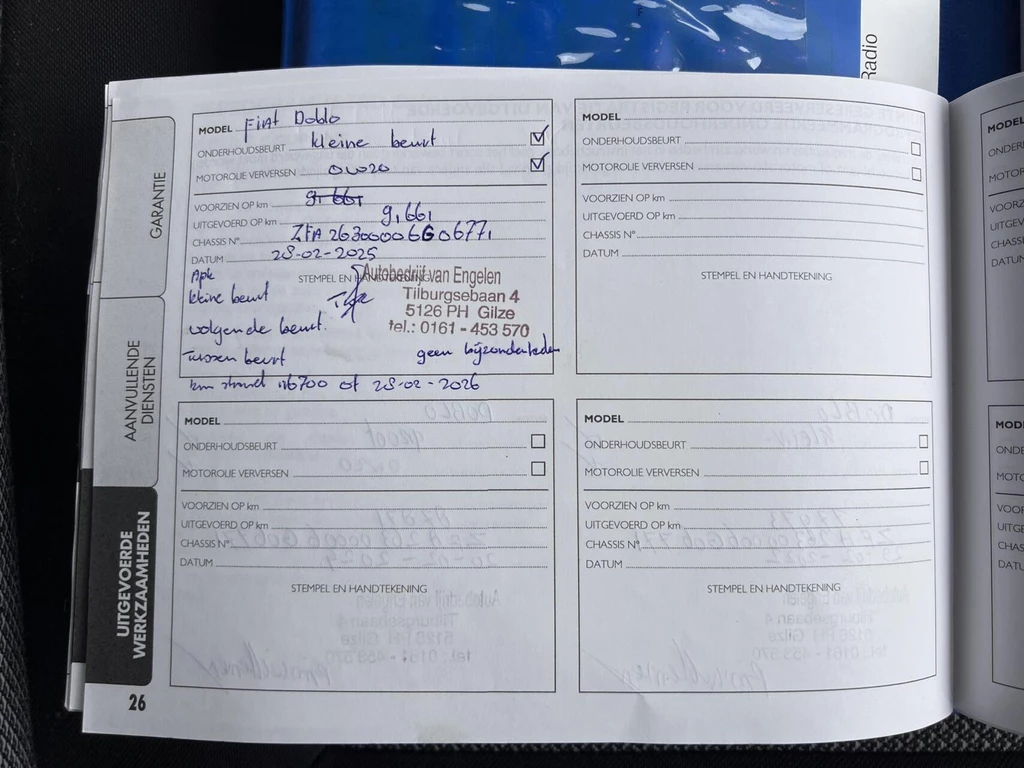 Radio
GARANTIE
AANVULLENDE
DIENSTEN
UITGEVOERDE
WERKZAAMHEDEN
26
MODEL Fiat Doblo
ONDERHOUDSBEURT kleine beurt
MOTOROLIE VERVERSEN 0W20
VOORZIEN OP km 91661
UITGEVOERD OP km 91661
CHASSIS N° ZFA26300006G06771
DATUM 28-02-2025
STEMPEL EN HANDTEKENING
Autobedrijf van Engelen
Tilburgsebaan 4
5126 PH Gilze
tel.: 0161 - 453 570
Apk
kleine beurt
volgende beurt.
Tussen beurt geen bijzonderheden
km stand 116700 of 28-02-2026
MODEL
ONDERHOUDSBEURT
MOTOROLIE VERVERSEN
VOORZIEN OP km
UITGEVOERD OP km
CHASSIS N°
DATUM
STEMPEL EN HANDTEKENING
MODEL
ONDERHOUDSBEURT
MOTOROLIE VERVERSEN
VOORZIEN OP km
UITGEVOERD OP km
CHASSIS N°
DATUM
STEMPEL EN HANDTEKENING
MODEL
ONDERHOUDSBEURT
MOTOROLIE VERVERSEN
VOORZIEN OP km
UITGEVOERD OP km
CHASSIS N°
DATUM
STEMPEL EN HANDTEKENING